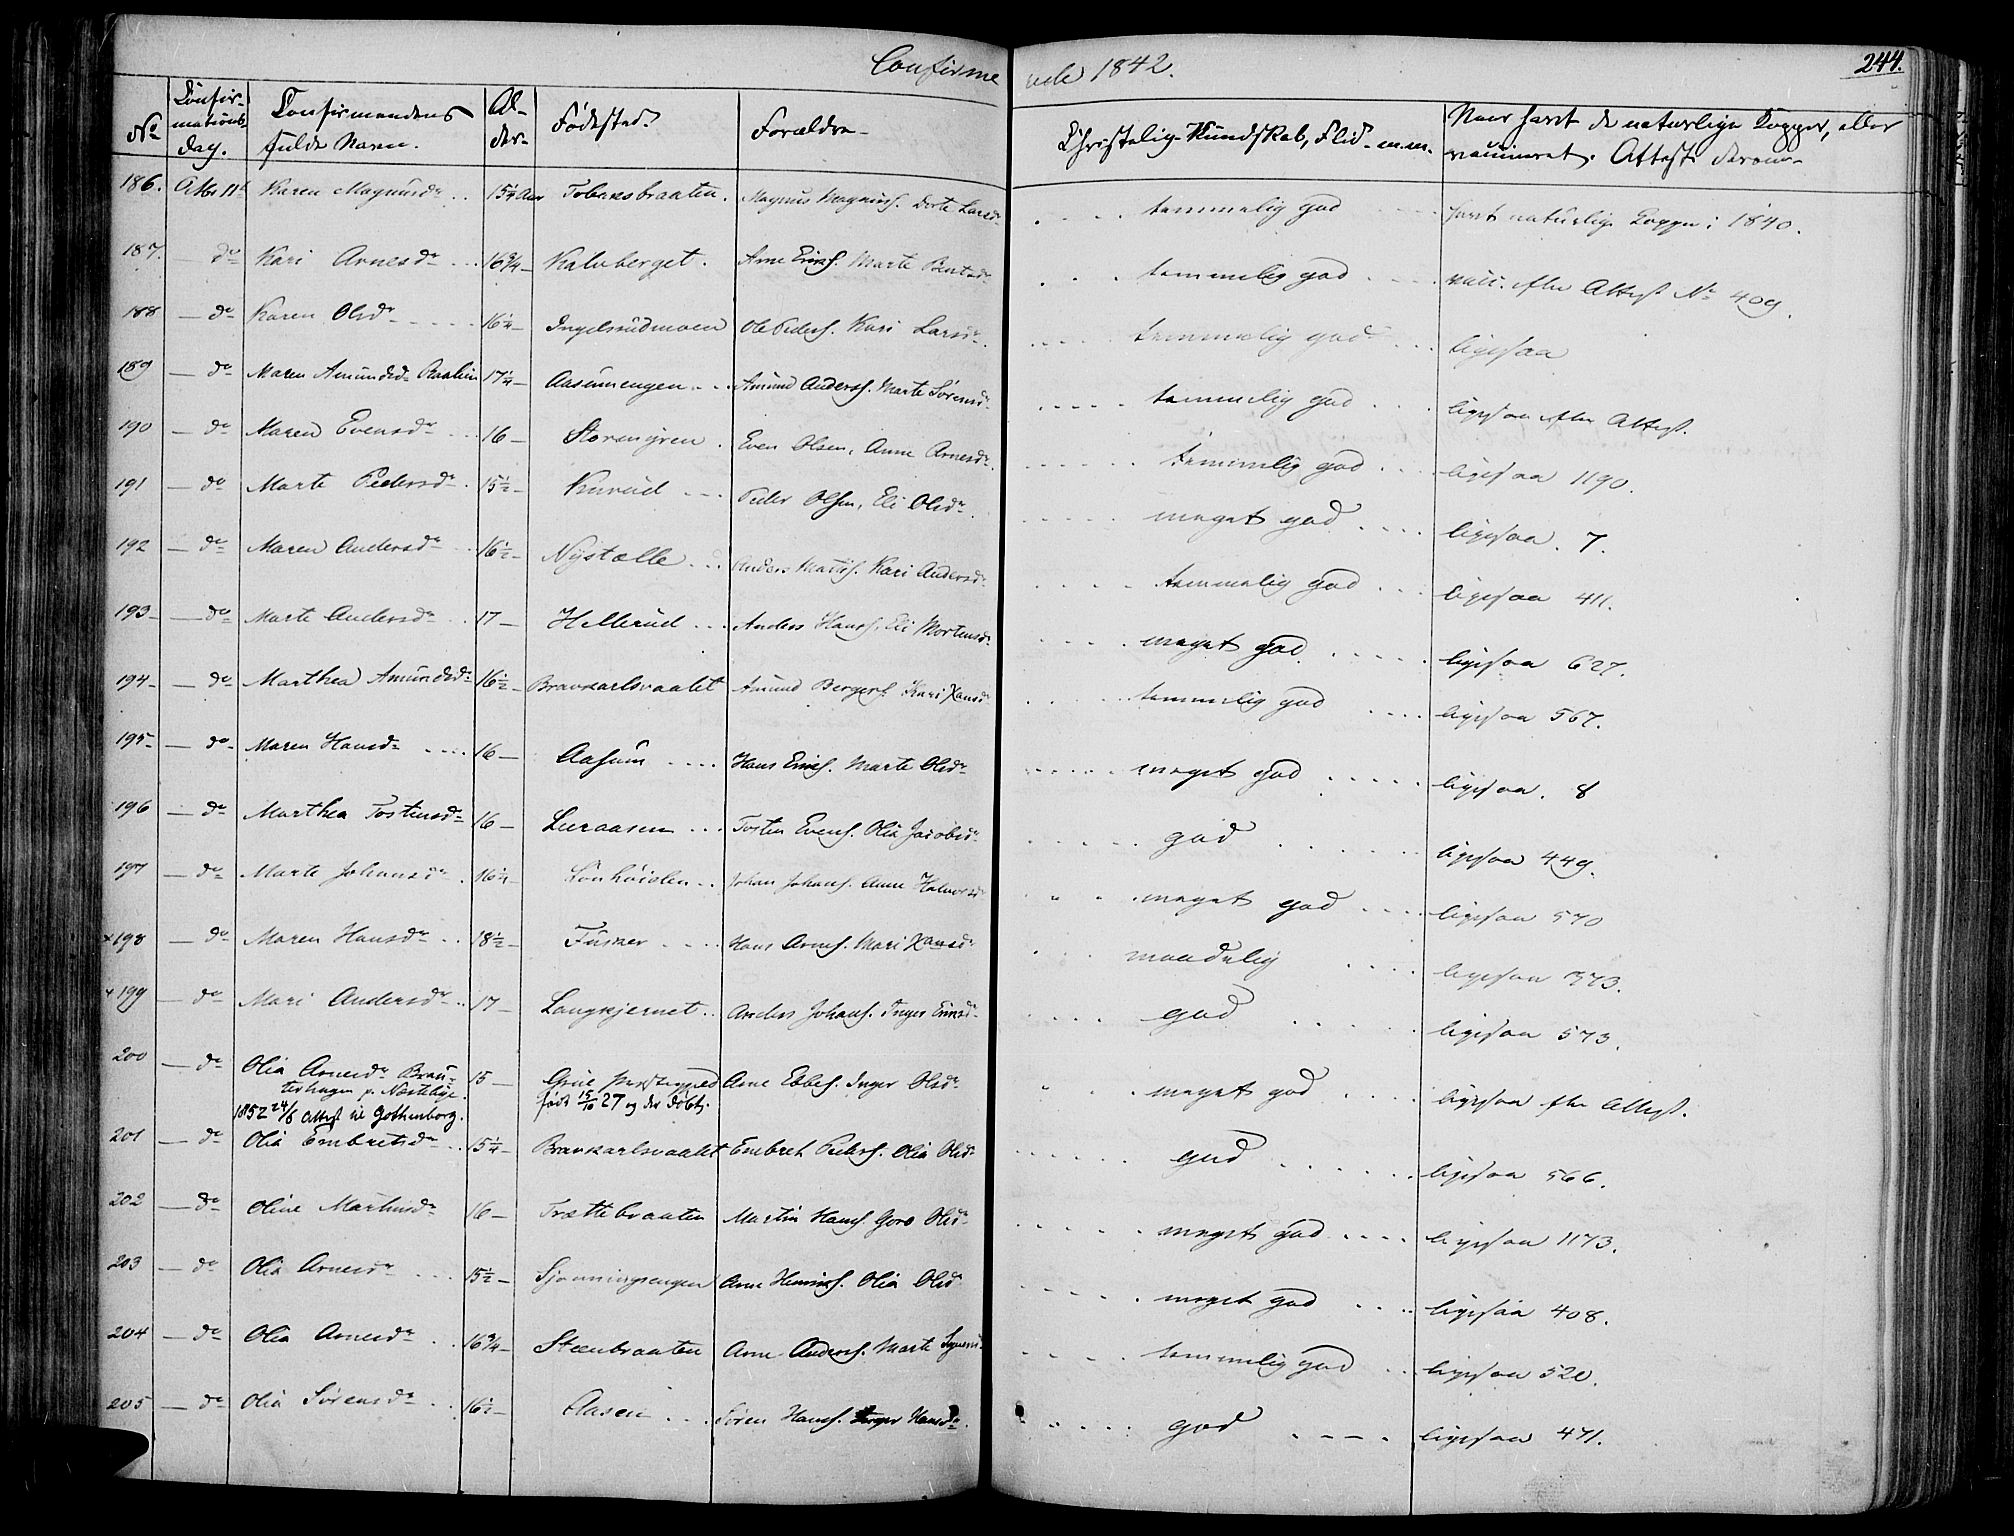 Confirmerede 1842.
244.
No
Confirmations Dag.
Confirmandens fulde Navn.
Alder
Fødested.
Forældre
Christelig Kundskab, Flid m.m.
Naar havt de naturlige Kopper, eller vaccineret. Attest derom
186. Karen Magnusdr 15¼ Aar Tobaksbraaten. Magnus Magnuss. Dorte Larsdr temmelig god havt naturlige Kopper i 1840.
187. do Kari Arnesdr 16¾ Kalvberget. Arne Erichs. Marte Berntsdr temmelig god vacc. efter Attest No 409.
188 do Karen Olsdr 16¼ Ingelsrudmoen Ole Peders. Kari Larsdr temmelig god ligesaa
189 do Maren Amundsdr 17¼ Aasumengen Amund Anders. Marte Sørensdr temmelig god ligesaa efter Attest.
190 do Maren Evensdr 16 Storemyren. Even Olsen, Anne Arnesdr temmelig god ligesaa 1190.
191 do Marte Pedersdr 15½ Kurud Peder Olsen, Eli Olsdr meget god ligesaa 7.
192 do Maren Andersdr 16½ Nystølle Anders Kari Andersdr temmelig god ligesaa 411.
193 do Marte Andersdr 17 Hellerud Anders Hans. Eli Mortensdr meget god ligesaa 627.
194 do Marthea Amundsdr 16½ Amund Bergers. Kari Hansdr temmelig god ligesaa 567.
195 do Maren Hansdr 16 Aasum Hans Erichs. Marte Olsdr meget god ligesaa. 8
196 do Marthea Tostensdr 16 Luraasen Tosten Evens. Olia Jacobsdr god ligesaa 449.
197 do Marte Johansdr 16½ Johan Johans. Anne Halvorsdr meget god ligesaa 570
×198 do Maren Hansdr 18½ Fusker Hans Arnes. Mari Hansdr maadelig ligesaa 373.
×199 do Mari Andersdr 17 Langkjernet Anders Johans. Inger Erichsdr god ligesaa 573.
200 do Olia Arnesdr 15 Grue Præstegjeld Arne Ebbes. Inger Olsdr meget god ligesaa efter Attest.
født 15/10 27 og der døbt.
1852 24/6 Attest til Gothenborg.
201 do Olia Embretsdr 15¼ Embret Peders. Olia Olsdr god ligesaa 566.
202 do Oline Martinsdr 16 Trættebraaten Martin Hans. Goro Olsdr meget god ligesaa 1173.
203 do Olia Arnesdr 15½ Arne Henriks. Olia Olsdr meget god ligesaa 408.
204 do Olia Arnesdr 16¾ Steenbraaten Arne Anders. Marte temmelig god ligesaa 520.
205 do Olia Sørensdr 16½ Aasen Søren Hans. Inger Hansdr god ligesaa 471.